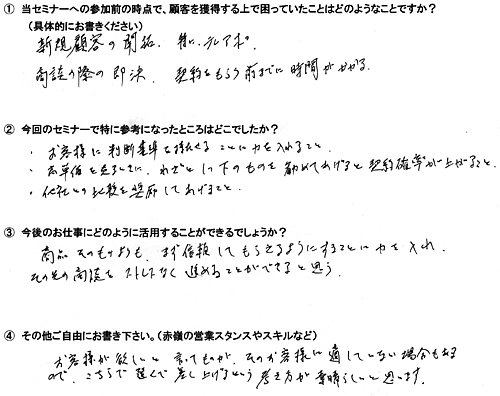 ① 当セミナーへの参加前の時点で、顧客を獲得する上で困っていたことはどのようなことですか？
（具体的にお書きください）
新規顧客の開拓。特に、テレアポ。
商談の際の即決。契約をもらう前までに時間がかかる。
② 今回のセミナーで特に参考になったところはどこでしたか？
・お客様に判断基準を持たせることに力を入れること。
・お単価を見るときに、わざと1つ下のものを勧めてあげると契約確率が上がること。
・他社との比較を奨励してあげること。
③ 今後のお仕事にどのように活用することができるでしょうか？
商品そのものよりも、まず信頼してもらえるようにすることに力を入れ、
その先の商談をストレスなく進めることができると思う。
④ その他ご自由にお書き下さい。（赤嶺の営業スタンスやスキルなど）
お客様が欲しいと言ってものが、そのお客様に適していない場合もある
ので、こちらで選んで差し上げるという考え方が素晴らしいと思います。